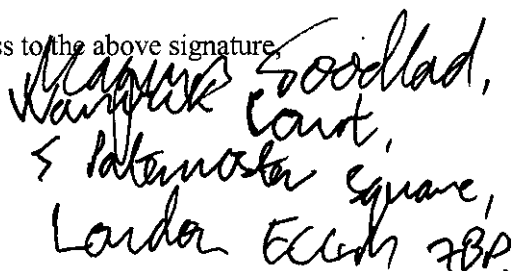 ss to the above signature,
Magnus Goodlad,
Warwick Court,
5 Paternoster Square,
London EC4M 7BP